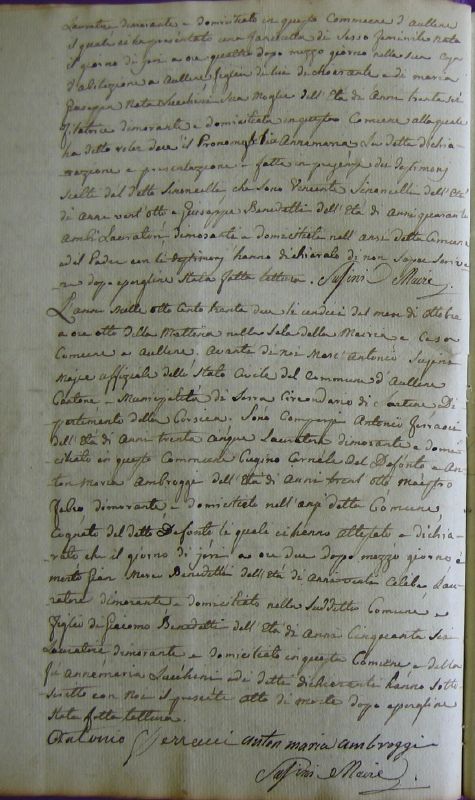 Lauratore dimorante e domiciliato in questo Commune d'Aullene
il quale ci ha presentato una fanciulla di sesso feminile nata
il giorno di jeri a ore quattro dopo mezzo giorno nella sua
d'abitazione a Aullene figlia di lui dichiarante e di maria
Giuseppa nata Lucchini sua moglie dell'Età di Anni trenta sei
filatrice dimorante e domiciliata in questo Comune alla quale
ha detto voler dare il Pronome di Annamaria le dette dichia-
razione e presentazione fatte in presenza dei testimonj
scelti dal detto Simoncelli che sono Vincente Simoncelli dell'Età
di Anni vent'otto e Giuseppe Benedetti dell'Età di Anni quaranta
Ambi Lauratori dimoranti e domiciliati nell'anzi detto Comune
ed il Padre con li testimonj hanno dichiarato di non sapere scrive-
re dopo essergline stata fatta lettura. Susini Maire.
L'anno mille otto cento trenta due li undeci del mese di Ottobre
a ore otto della Mattina nella Sala della Mairia e Casa
Comune a Aullene. Avante di noi Marc'Antonio Susini
Maire uffiziale dello Stato Civile del Commune d'Aullene
Cantone Municipalità di Serra Circondario di Sartene Di-
partimento della Corsica. Sono Comparsi Antonio Ferracci
dell'Età di Anni trenta cinque Lauratore dimorante e domi-
ciliato in questo Commune Cugino Carnale del Defonto e An-
ton Maria Ambroggi dell'Età di Anni trent'otto Maestro
Fabro dimorante e domiciliato nell'anzi detto Comune
Cognato del detto Defonto li quali ci hanno attestato e dichia-
rato che il giorno di jeri a ore due dopo mezzo giorno è
morto Gian Marc Benedetti dell'Età di Anni Celebe Lau-
ratore dimorante e domiciliato nella suddetta Comune e
figlio di Giacomo Benedetti dell'Età di Anni Cinquanta sei
Lauratore dimorante e domiciliato in questo Comune e della
fu Annamaria Lucchini ed i detti dichiaranti hanno sotto-
scritto con noi il presente atto di morte dopo essergline
stata fatta lettura.
Antonio Ferracci anton maria ambroggi
Susini Maire.